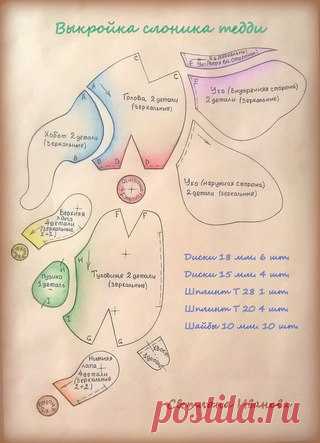 Выкройка слоника тедди
Ухо (внутренняя сторона)
2 детали
(зеркальные)
Голова 2 детали
(зеркальные)
Хобот 2 детали
(зеркальные)
Ухо (наружная сторона)
2 детали (зеркальные)
Верхняя
лапа
4 детали
(зеркальные
2+2)
Пузико
1 деталь
Туловище 2 детали
(зеркальные)
Диски 18 мм 6 шт.
Диски 15 мм 4 шт.
Шплинт Т 28 1 шт.
Шплинт Т 20 4 шт.
Шайбы 10 мм 10 шт.
Хвост
1 деталь
Нижняя
лапа
4 детали
(зеркальные
2+2)
postila.ru